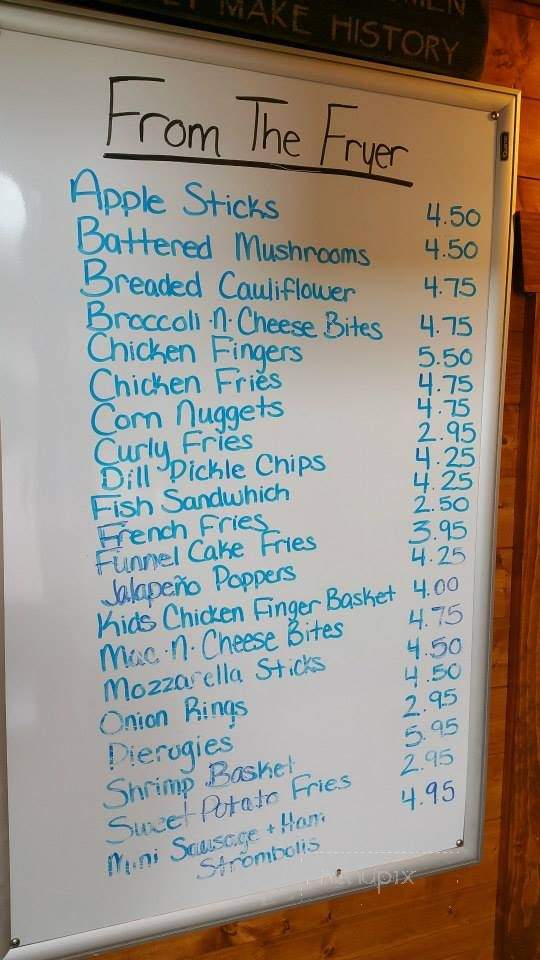 MAKE HISTORY
From The Fryer
Apple Sticks 4.50
Battered Mushrooms 4.50
Breaded Cauliflower 4.75
Broccoli·N·Cheese Bites 4.75
Chicken Fingers 5.50
Chicken Fries 4.75
Corn Nuggets 4.75
Curly Fries 2.95
Dill Pickle Chips 4.25
Fish Sandwhich 4.25
French Fries 2.50
Funnel Cake Fries 3.95
Jalapeño Poppers 4.25
Kids Chicken Finger Basket 4.00
Mac·N·Cheese Bites 4.75
Mozzarella Sticks 4.50
Onion Rings 4.50
Pierogies 2.95
Shrimp Basket 5.95
Sweet Potato Fries 2.95
Mini Sausage + Ham 4.95
Strombolis